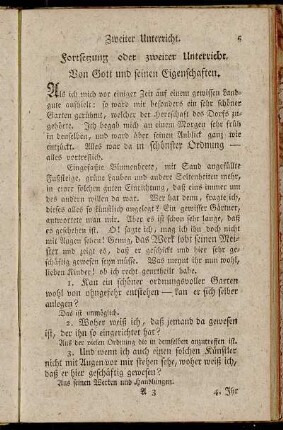 Zweiter Unterricht. 5
Fortsetzung oder zweiter Unterricht.
Von Gott und seinen Eigenschaften.
Als ich mich vor einiger Zeit auf einem gewissen Land-
gute aufhielt: so ward mir besonders ein sehr schöner
Garten gerühmt, welcher der Herrschaft des Dorfs zu-
gehörte. Ich begab mich an einem Morgen sehr früh
in denselben, und ward über seinen Anblick ganz wie
entzückt. Alles war da in schönster Ordnung —
alles vortreflich.
Eingefaßte Blumenbeete, mit Sand angefüllte
Fußsteige, grüne Lauben und andere Seltenheiten mehr,
in einer solchen guten Einrichtung, daß eins immer um
des andern willen da war. Wer hat denn, fragte ich,
dieses alles so künstlich angelegt? Ein gewisser Gärtner,
antwortete man mir. Aber es ist schon sehr lange, daß
es geschehen ist. O! sagte ich, mag ich ihn doch nicht
mit Augen sehen! Genug, das Werk lobt seinen Mei-
ster und zeigt es, daß er geschickt und hier sehr
geschäftig gewesen seyn müsse. Was meynt ihr nun wohl,
lieben Kinder! ob ich recht geurtheilt habe.
1. Kan ein schöner ordnungsvoller Garten
wohl von ohngefehr entstehen — kan er sich selber
anlegen?
Das ist unmöglich.
2. Woher weiß ich, daß jemand da gewesen
ist, der ihn so eingerichtet hat?
Aus der vielen Ordnung die in demselben anzutreffen ist.
3. Und wenn ich auch einen solchen Künstler
nicht mit Augen vor mir stehen sehe, woher weiß ich,
daß er hier geschäftig gewesen ist?
Aus seinen Werken und Handlungen.
A 3 4. Ihr